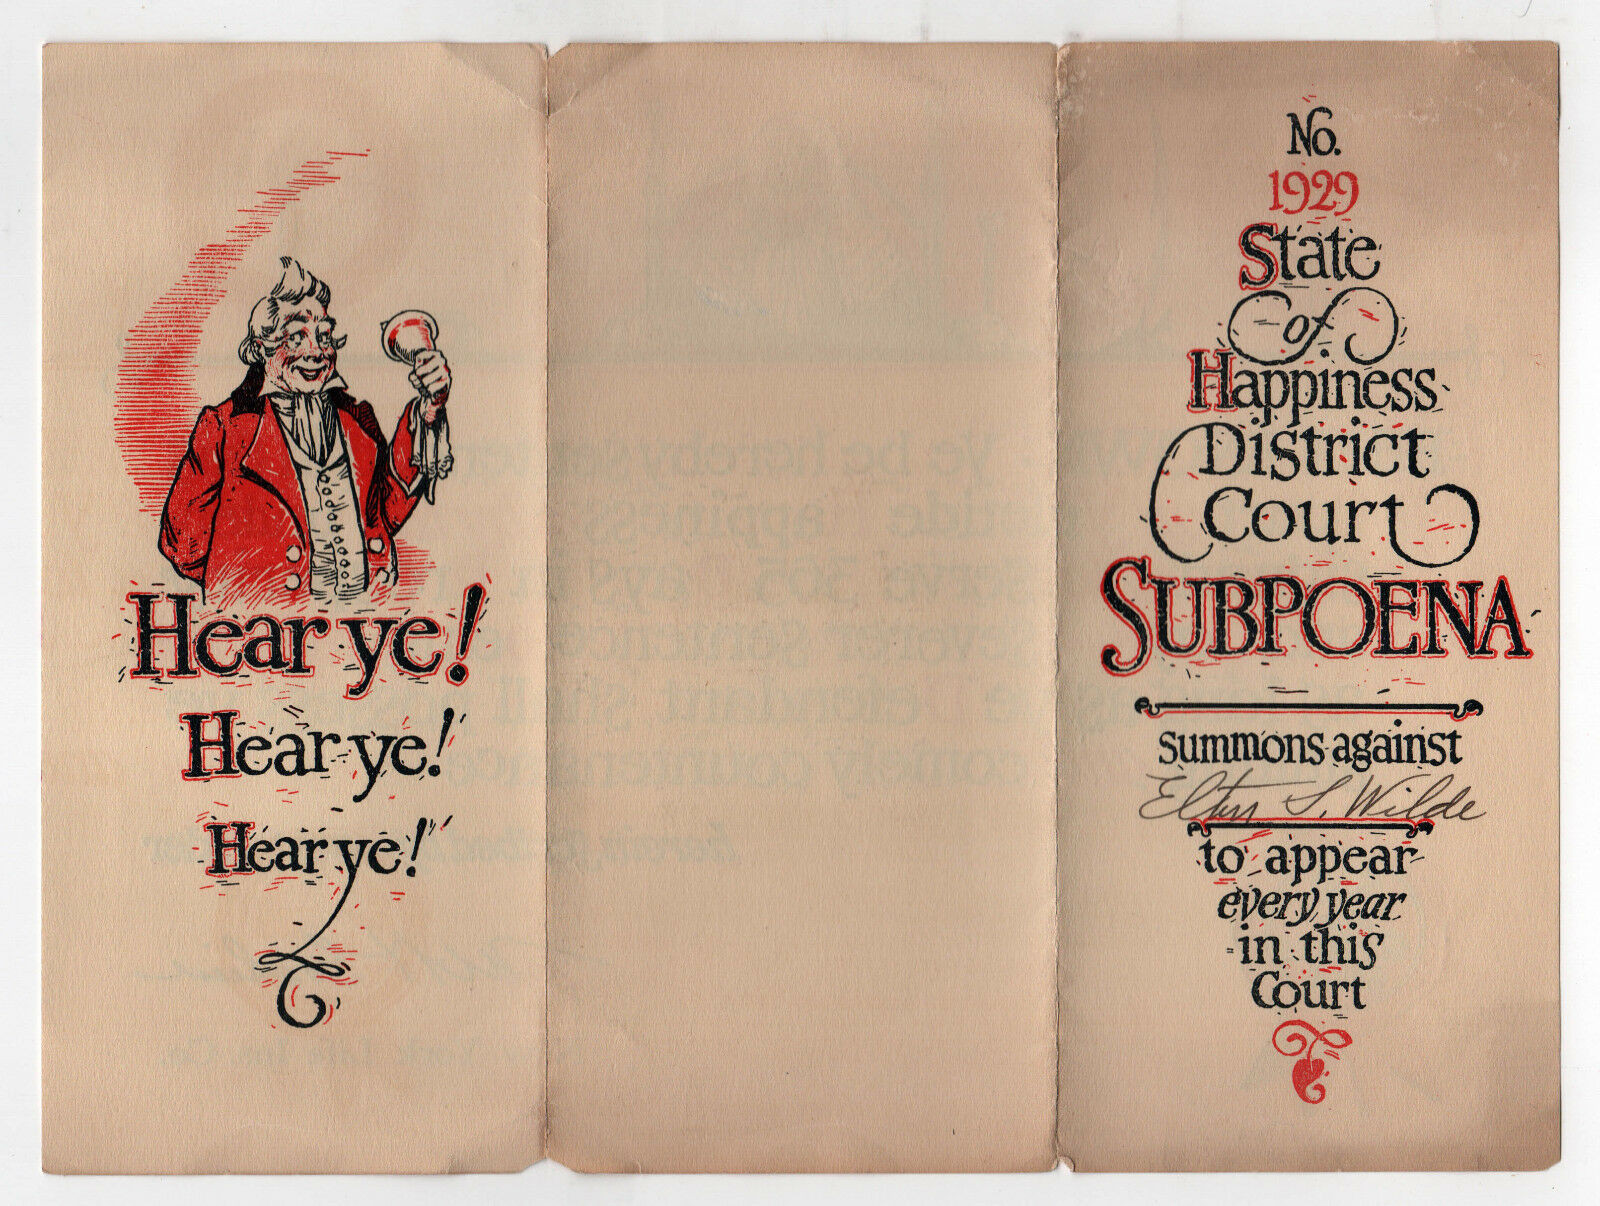 Hear ye!
Hear ye!
Hear ye!
No.
1929
State
of
Happiness
District
Court
SUBPOENA
summons against
S. Wilde
to appear
every year
in this
Court